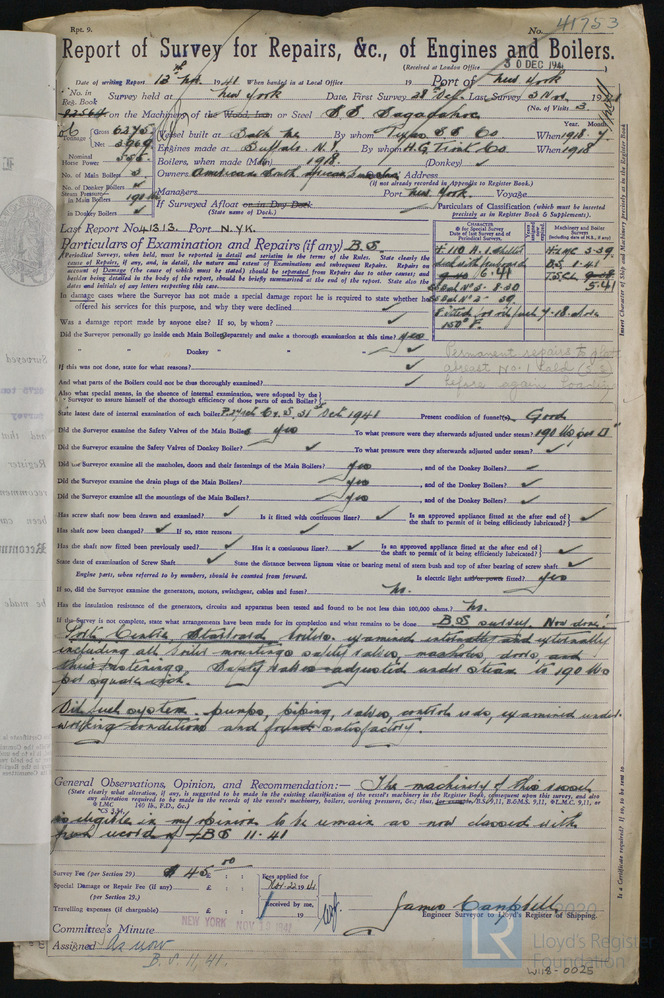 Rpt. 9.
No. 41753
Report of Survey for Repairs, &c., of Engines and Boilers.
(Received at London Office 30 DEC 1941)
Date of writing Report 12th Nov. 1941 When handed in at Local Office 19 Port of New York
No. in Reg. Book
Survey held at New York Date, First Survey 28th Oct. Last Survey 3 Nov. 1941
(No. of Visits 3
on the Machinery of the Wood, Iron or Steel S.S. Sagadahoc
Tonnage Gross 6275 Net 3969
Vessel built at Bath Me By whom Texas S S Co When 1918 7
Year. Month.
Engines made at Buffalo N.Y. By whom H.G. Trout Co. When 1918
Nominal Horse Power 556
Boilers, when made (Main) 1918 (Donkey) ✓
No. of Main Boilers 3
Owners American South African Address
(if not already recorded in Appendix to Register Book.)
No. of Donkey Boilers ✓
Managers Port New York Voyage
Steam Pressure in Main Boilers 190 lbs
If Surveyed Afloat or in Dry Dock
(State name of Dock.)
in Donkey Boilers ✓
Particulars of Classification (which must be inserted precisely as in Register Book & Supplements).
Last Report No. 41313. Port N.YK.
Particulars of Examination and Repairs (if any) B.S
Periodical Surveys, when held, must be reported in detail and seriatim in the terms of the Rules. State clearly the
cause of Repairs, if any, and, in detail, the nature and extent of Examinations and subsequent Repairs. Repairs on
account of Damage (the cause of which must be stated) should be separated from Repairs due to other causes; and
besides being detailed in the body of the report, should be briefly summarised at the end of the report. State also the
dates and initials of any letters respecting this case.
CHARACTER
for Special Survey
Date of last Survey and of Periodical Surveys.
Machinery and Boiler Surveys
(including dates of N.B., if any)
6.41
S S Bal No 2 - 8.30
S S Bal No 3 - 39.
150° F.
LMC 3-39
B.S. 8-41
5.41
In damage cases where the Surveyor has not made a special damage report he is required to state whether he
offered his services for this purpose, and why they were declined ✓
Was a damage report made by anyone else? If so, by whom? ✓
Did the Surveyor personally go inside each Main Boiler separately and make a thorough examination at this time? Yes
" " Donkey " " " ✓
Permanent repairs to
abreast No. 1 hold
before again loading
If this was not done, state for what reasons? ✓
And what parts of the Boilers could not be thus thoroughly examined? ✓
Also what special means, in the absence of internal examination, were adopted by the
Surveyor to assure himself of the thorough efficiency of those parts of each Boiler? ✓
State latest date of internal examination of each boiler P. 31st Oct C. S. 31st Oct 1941 Present condition of funnel(s) Good
Did the Surveyor examine the Safety Valves of the Main Boilers yes To what pressure were they afterwards adjusted under steam? 190 lbs per □"
Did the Surveyor examine the Safety Valves of Donkey Boiler? ✓ To what pressure were they afterwards adjusted under steam? ✓
Did the Surveyor examine all the manholes, doors and their fastenings of the Main Boilers? Yes , and of the Donkey Boilers? ✓
Did the Surveyor examine the drain plugs of the Main Boilers? Yes , and of the Donkey Boilers? ✓
Did the Surveyor examine all the mountings of the Main Boilers? Yes , and of the Donkey Boilers? ✓
Has screw shaft now been drawn and examined? ✓ Is it fitted with continuous liner? ✓ Is an approved appliance fitted at the after end of the shaft to permit of it being efficiently lubricated? ✓
Has shaft now been changed? ✓ If so, state reasons ✓
Has the shaft now fitted been previously used? ✓ Has it a continuous liner? ✓ Is an approved appliance fitted at the after end of the shaft to permit of it being efficiently lubricated? ✓
State date of examination of Screw Shaft ✓ State the distance between lignum vitæ or bearing metal of stern bush and top of after bearing of screw shaft ✓
Engine parts, when referred to by numbers, should be counted from forward. Is electric light and/or power fitted? Yes
If so, did the Surveyor examine the generators, motors, switchgear, cables and fuses? No.
Has the insulation resistance of the generators, circuits and apparatus been tested and found to be not less than 100,000 ohms? No.
If the Survey is not complete, state what arrangements have been made for its completion and what remains to be done B.S survey. Now done.
Port, Centre, Starboard boilers examined internally and externally
including all boiler mountings safety valves, manholes, doors, and
their fastenings. Safety valves adjusted under steam to 190 lbs
per square inch.
Oil fuel system pumps, piping, valves, control rods, examined under
working conditions and found satisfactory.
General Observations, Opinion, and Recommendation:— The machinery of this vessel
(State clearly what alteration, if any, is suggested to be made in the existing classification of the vessel's machinery in the Register Book, consequent upon this survey, and also
any alteration required to be made in the records of the vessel's machinery, boilers, working pressures, &c.; thus, for example, B.S. 9,11, B.&M.S. 9,11, LMC 9,11, or
LMC 140 lb., F.D., &c.)
CS 3,34.
is eligible in my opinion to be remain as now classed with
fresh record of + BS 11-41
Survey Fee (per Section 29) $ 45.00
Fees applied for Nov. 22 1941
Special Damage or Repair Fee (if any) £ : :
(per Section 29.)
Received by me,
Travelling expenses (if chargeable) £ : :
19
James Campbell
Engineer Surveyor to Lloyd's Register of Shipping.
NEW YORK NOV 12 1941
Committee's Minute
Assigned As now
B. S. 11, 41.
Insert Character of Ship and Machinery precisely as in the Register Book
Is a Certificate required? If so, to be sent to
2020
LR
Lloyd's Register
Foundation
W118-0025